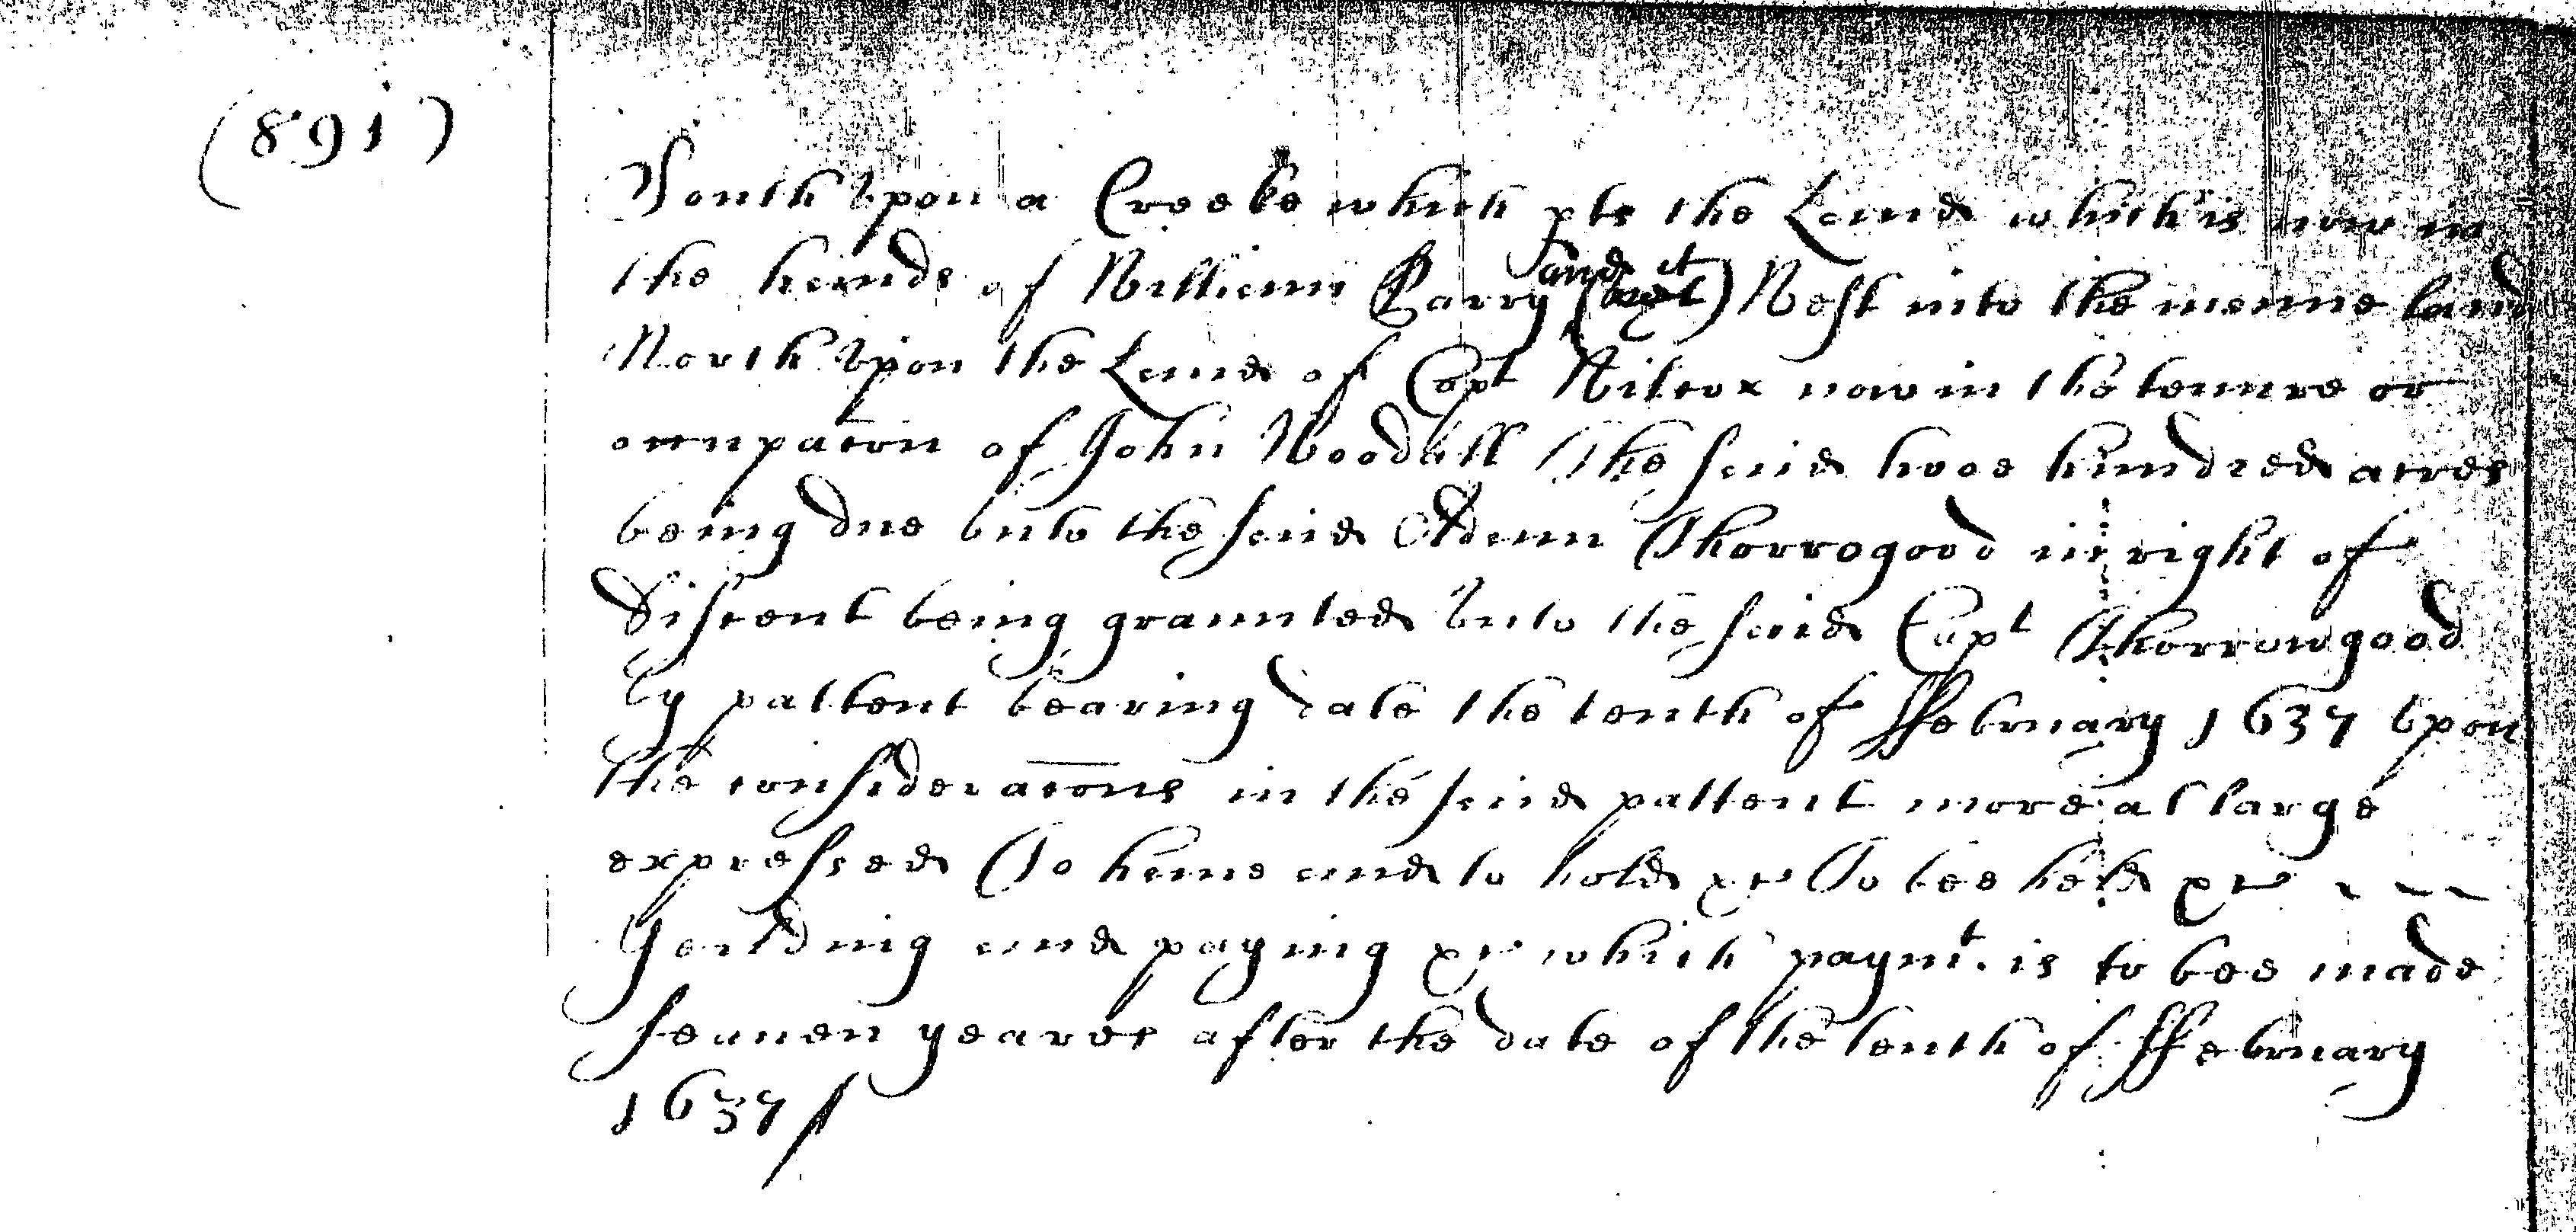 (891)
South vpon a Creeke which pts the Land which is now in
the hands of William Parry (and it) West into the maine land
North vpon the Land of Capt Wilcox now in the tenure or
occupacon of John Woodall The said twoe hundred acres
being due vnto the said Adam Thorrogood in right of
discent being graunted vnto the said Capt Thorrowgood
by pattent bearing date the tenth of ffebruary 1637 vpon
the consideracons in the said pattent more at large
expressed To have and to hold &c To bee held &c
Yeilding and paying &c which paymt. is to bee made
seauen yeares after the date of the tenth of ffebruary
1637/